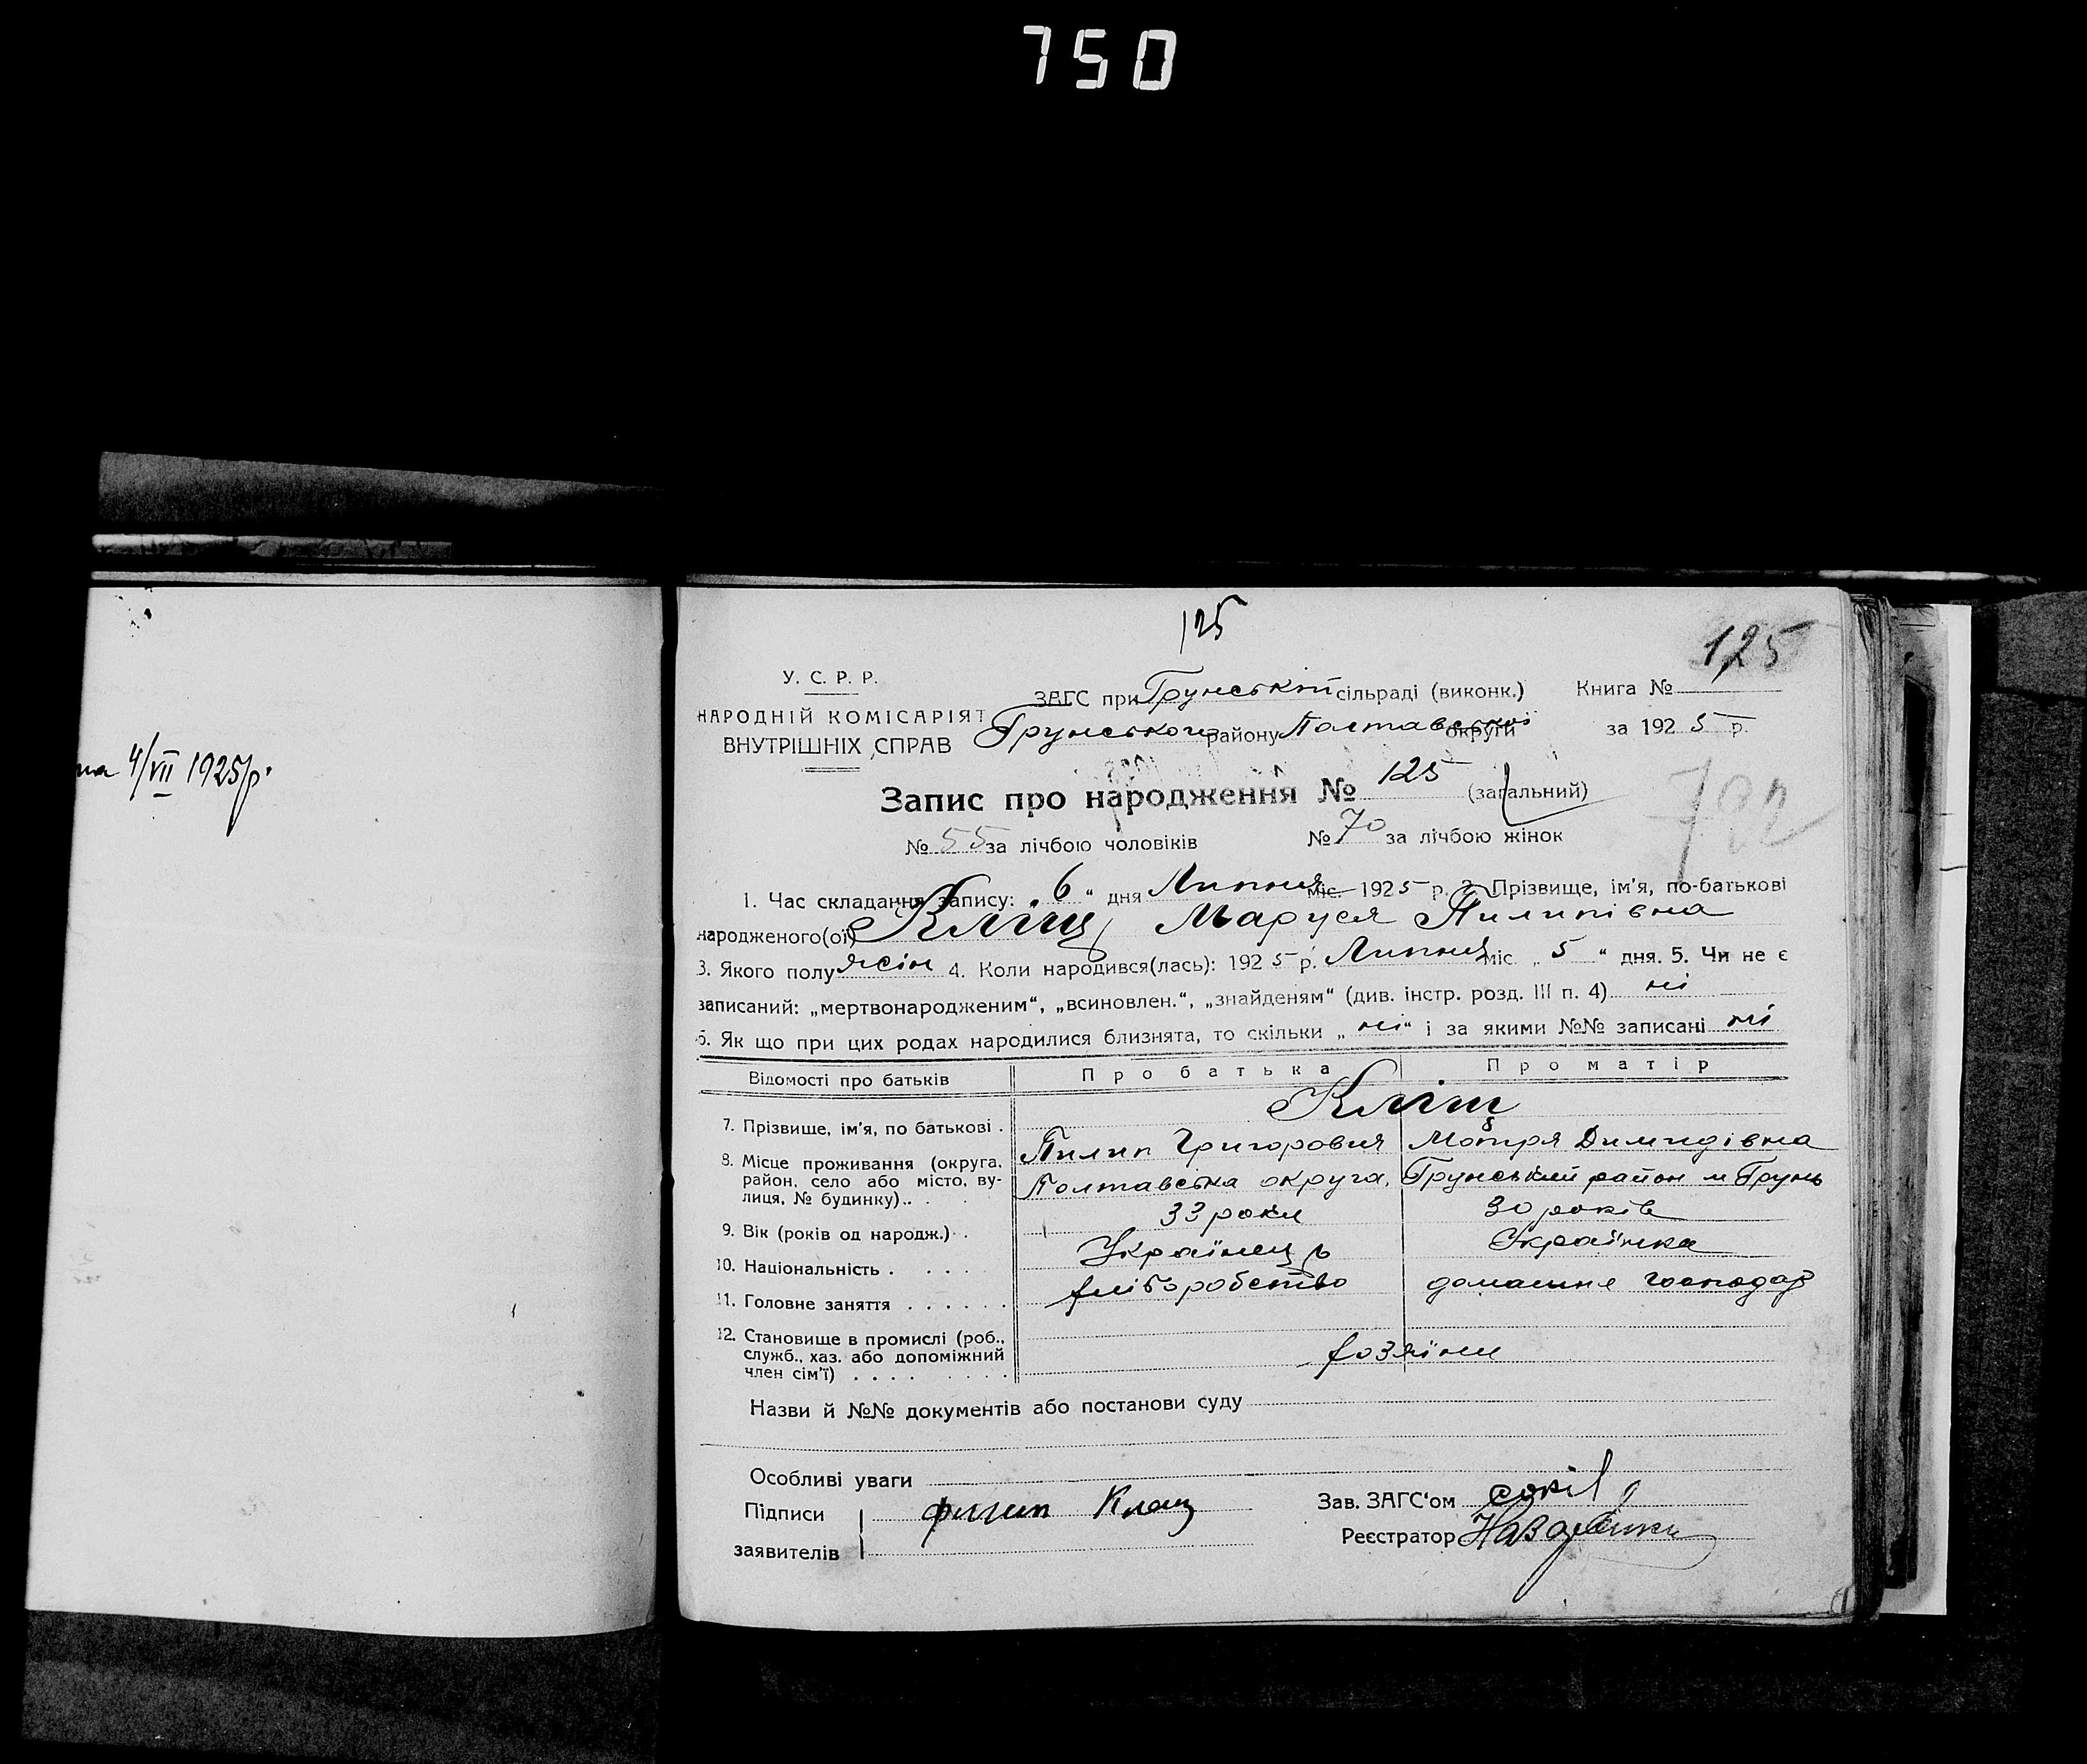 750
на 4/VII 1925 р.
125
125
У. С. Р. Р.
НАРОДНІЙ КОМІСАРІЯТ
ВНУТРІШНІХ СПРАВ
ЗАГС при Грунській сільраді (виконк.)
Грунського району Полтавської округи
Книга №
за 1925 р.
Запис про народження № 125 (загальний)
722
№ 55 за лічбою чоловіків № 70 за лічбою жінок
1. Час складання запису: 6 " дня Липня міс. 1925 р. 2. Прізвище, ім'я, по-батькові
народженого(ої) Кліщ Маруся Пилипівна
3. Якого полу жін 4. Коли народився(лась): 1925 р. Липня міс. „ 5 " дня. 5. Чи не є
записаний: „мертвонародженим", „всиновлен.", „знайденям" (див. інстр. розд. III п. 4) ні
6. Як що при цих родах народилися близнята, то скільки „ ні " і за якими №№ записані ні
Відомості про батьків Про батька Про матір
Кліщ
7. Прізвище, ім'я, по батькові . Пилип Григорович Мотря Димидівна
8. Місце проживання (округа, район, село або місто, вулиця, № будинку) . . Полтавська округа, Грунський район м Грунь
9. Вік (років од народж.) . 33 роки 30 років
10. Національність . . . . . Українець Українка
11. Головне заняття . . . . . . хліборобство домашне господар
12. Становище в промислі (роб., служб., хаз. або допоміжний член сім'ї) . . . . . . . . хозяїни
Назви й №№ документів або постанови суду
Особливі уваги
Підписи
заявителів
Филип Клещ
Зав. ЗАГС'ом Сокіл
Реєстратор